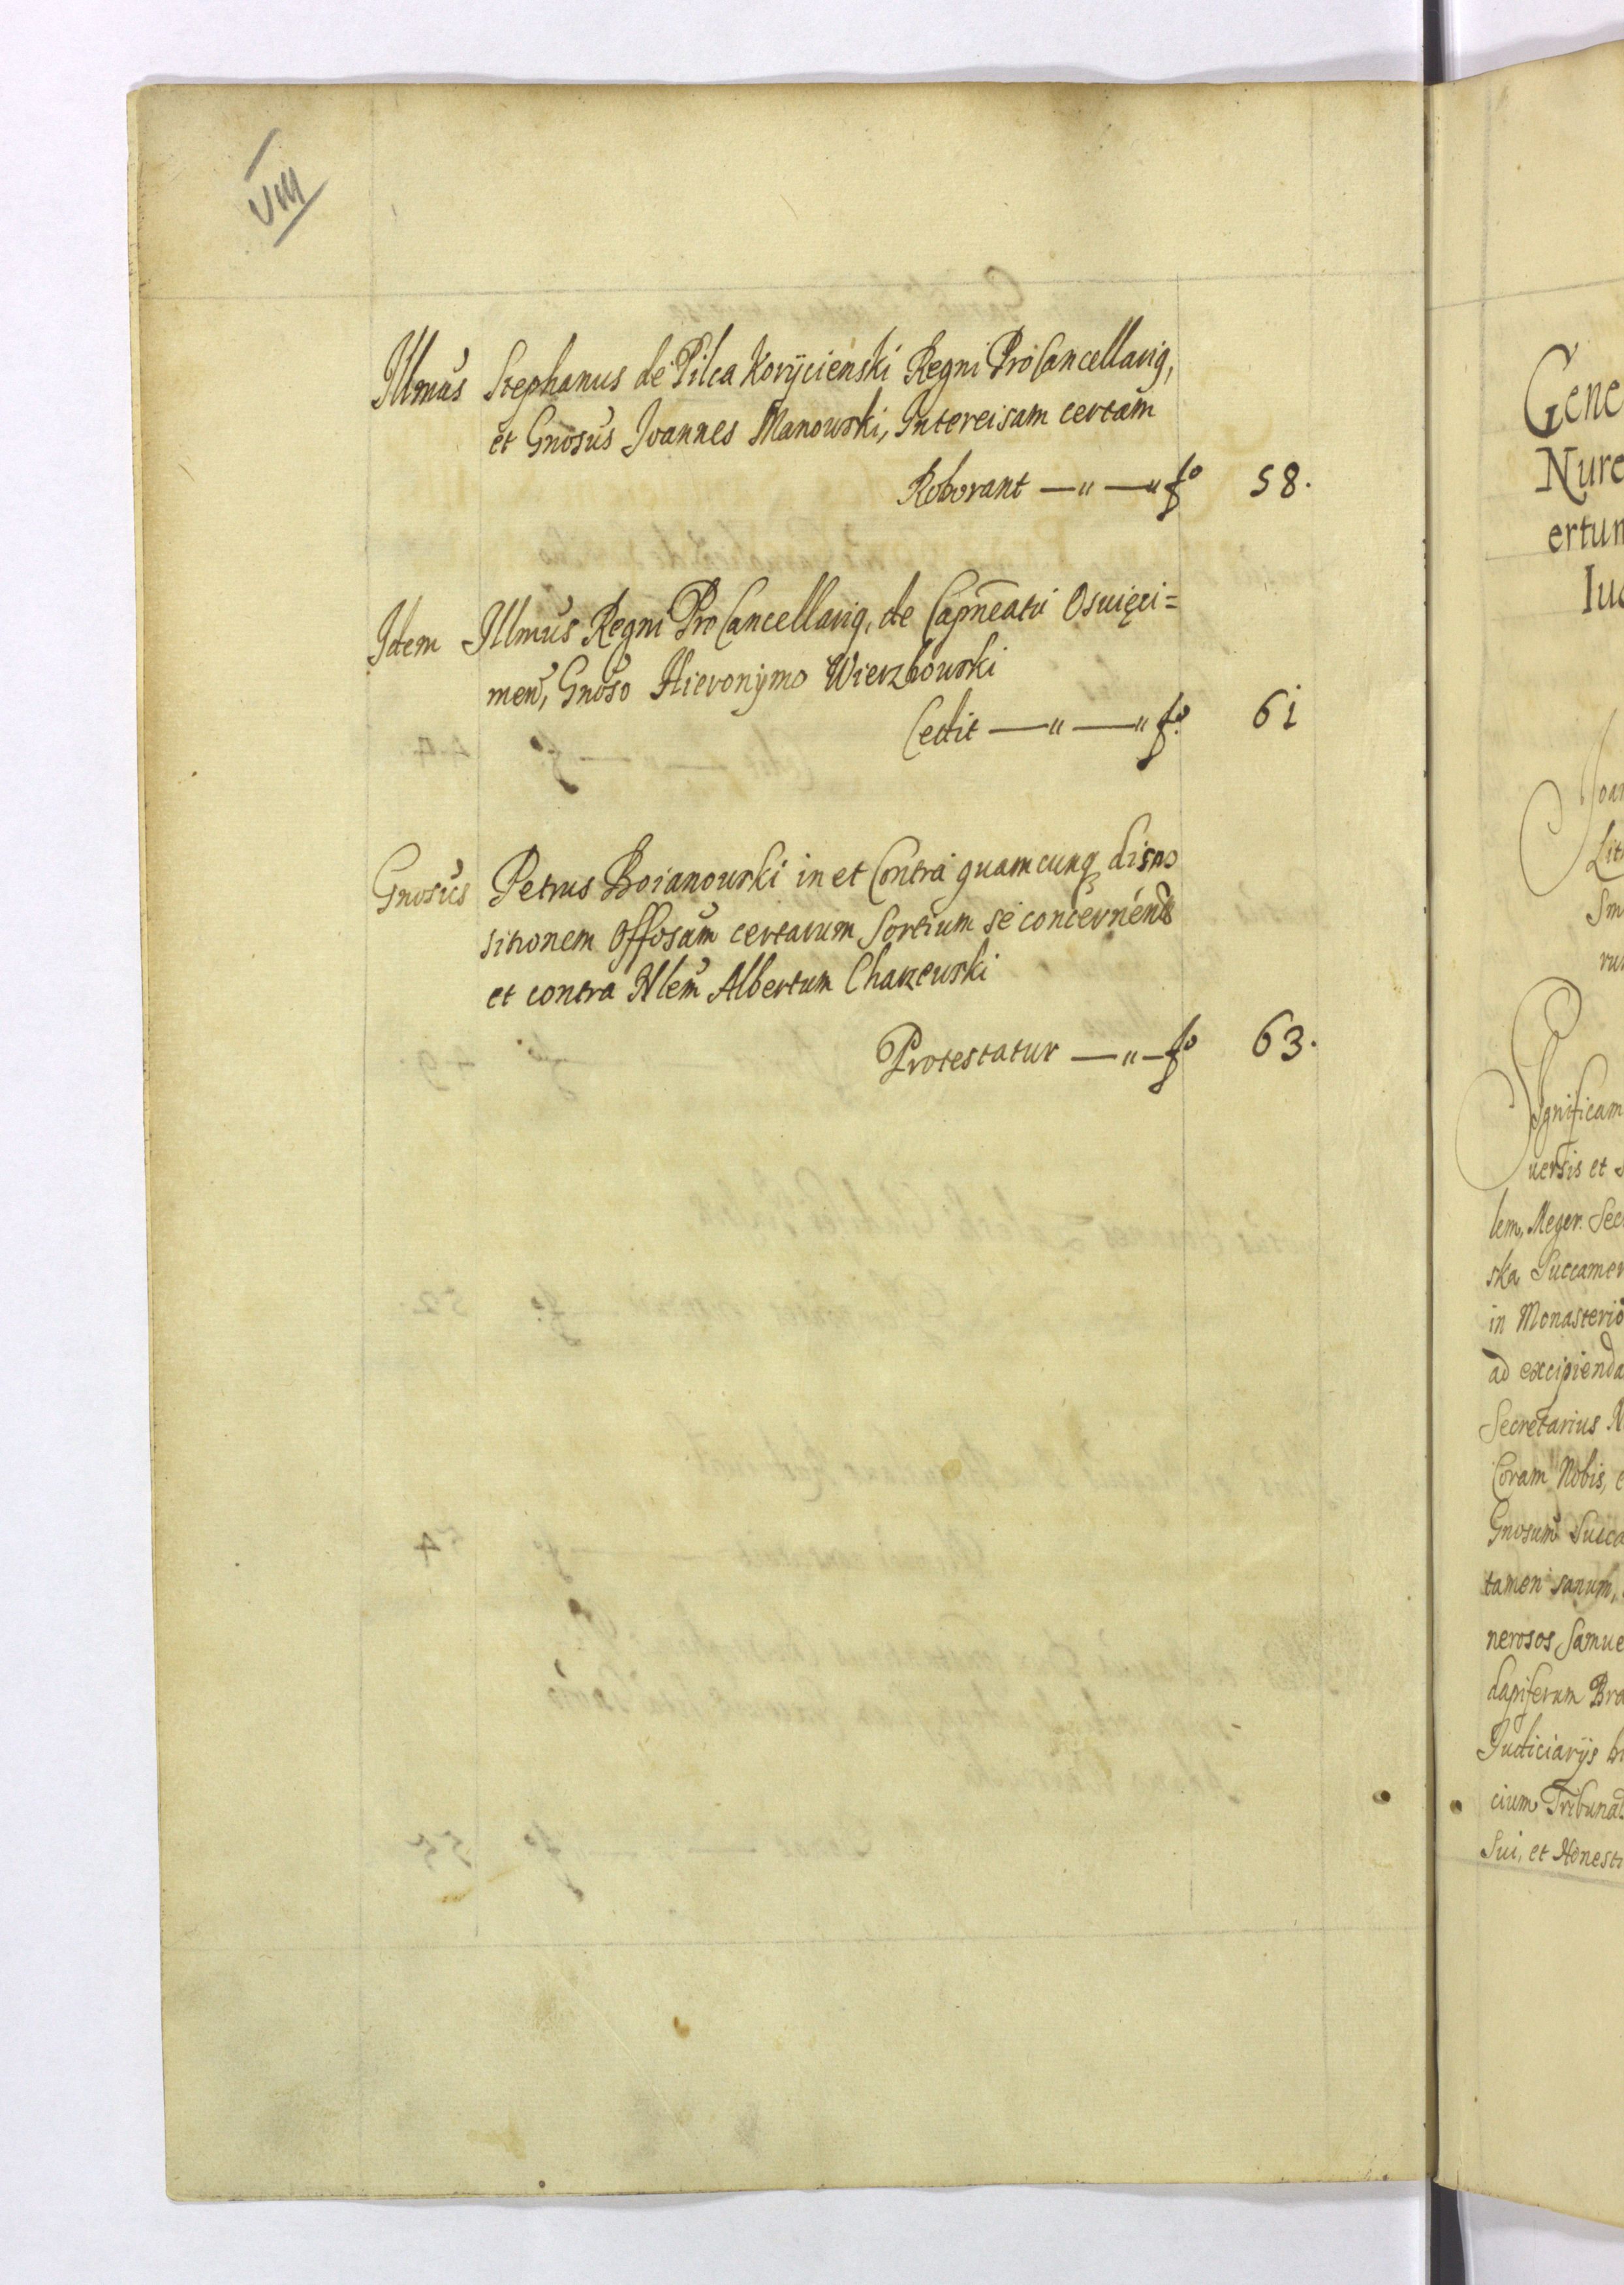 VIII
Illmus Stephanus de Pilca Korycienski Regni ProCancellarig,
et Gnosus Joannes Manowski, Intercisam certam
Roborant —"—" fo 58.
Idem Illmus Regni ProCancellarig, de Capneatu Osuięci=
men, Gnoso Hieronymo Wierzbowski
Cedit —"—" fo. 61
Gnosus Petrus Boianowski in et Contra quamcunq dispo
sitionem Offosam certarum Sortium se concernen
et contra Nlem Albertum Charzewski
Protestatur —"— fo 63.
Gene
Nure
ertum
Iud
Joan
Lit
Sm
rum
Significam
uersis et s
lem, Meger. Sec
ska Succamer
in Monasterio
ad excipienda
Secretarius N
Coram Nobis, e
Gnosum Succa
tamen sanum,
nerosos Samue
dapiferum Bra
Judiciarijs
cium Tribunal
Sui, et Honest